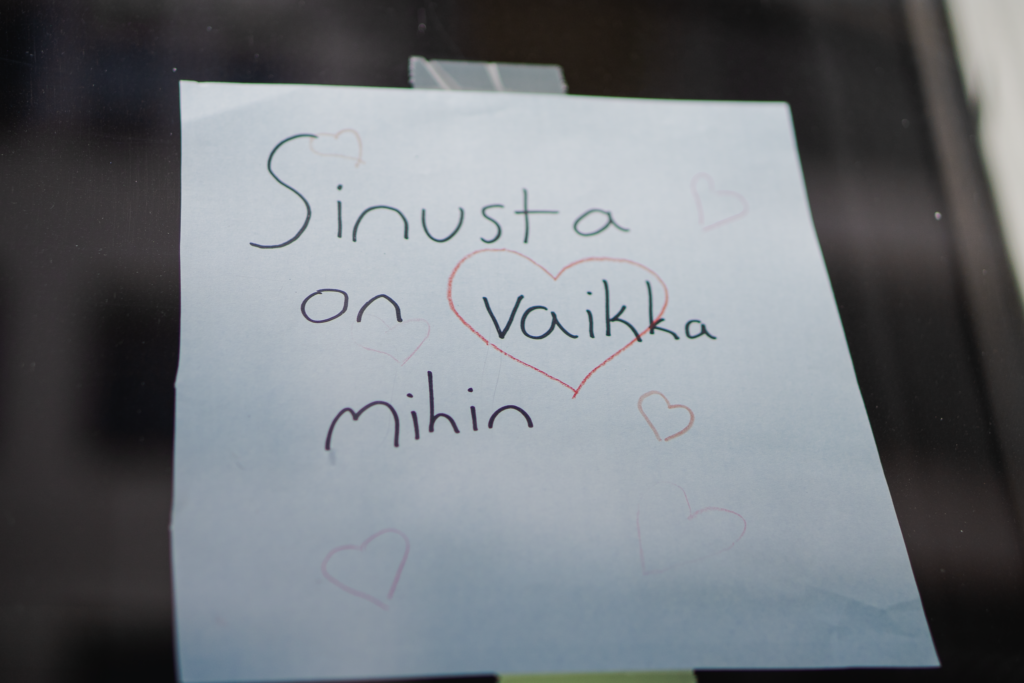 Sinusta
on vaikka
mihin